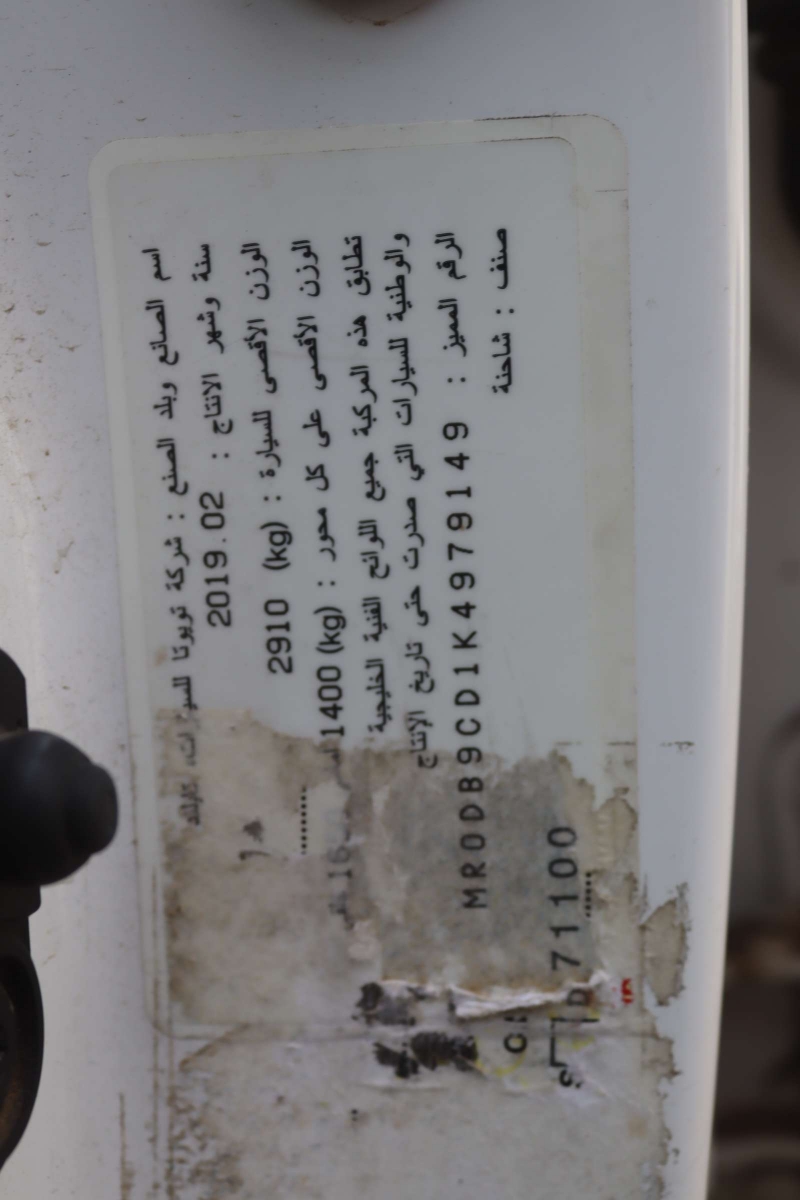 اسم الصانع وبلد الصنع : شركة تويوتا
سنة وشهر الانتاج : 2019.02
الوزن الأقصى للسيارة : (kg) 2910
الوزن الأقصى على كل محور : (kg) 1400
تطابق هذه المركبة جميع اللوائح الفنية الخليجية
والوطنية للسيارات التي صدرت حتى تاريخ الإنتاج
الرقم المميز : MR0DB9CD1K4979149
صنف : شاحنة
71100